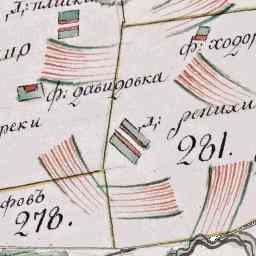 д: плиска
ф: ходор
ф: давидовка
реки
д: репихи
281.
фовъ
278.